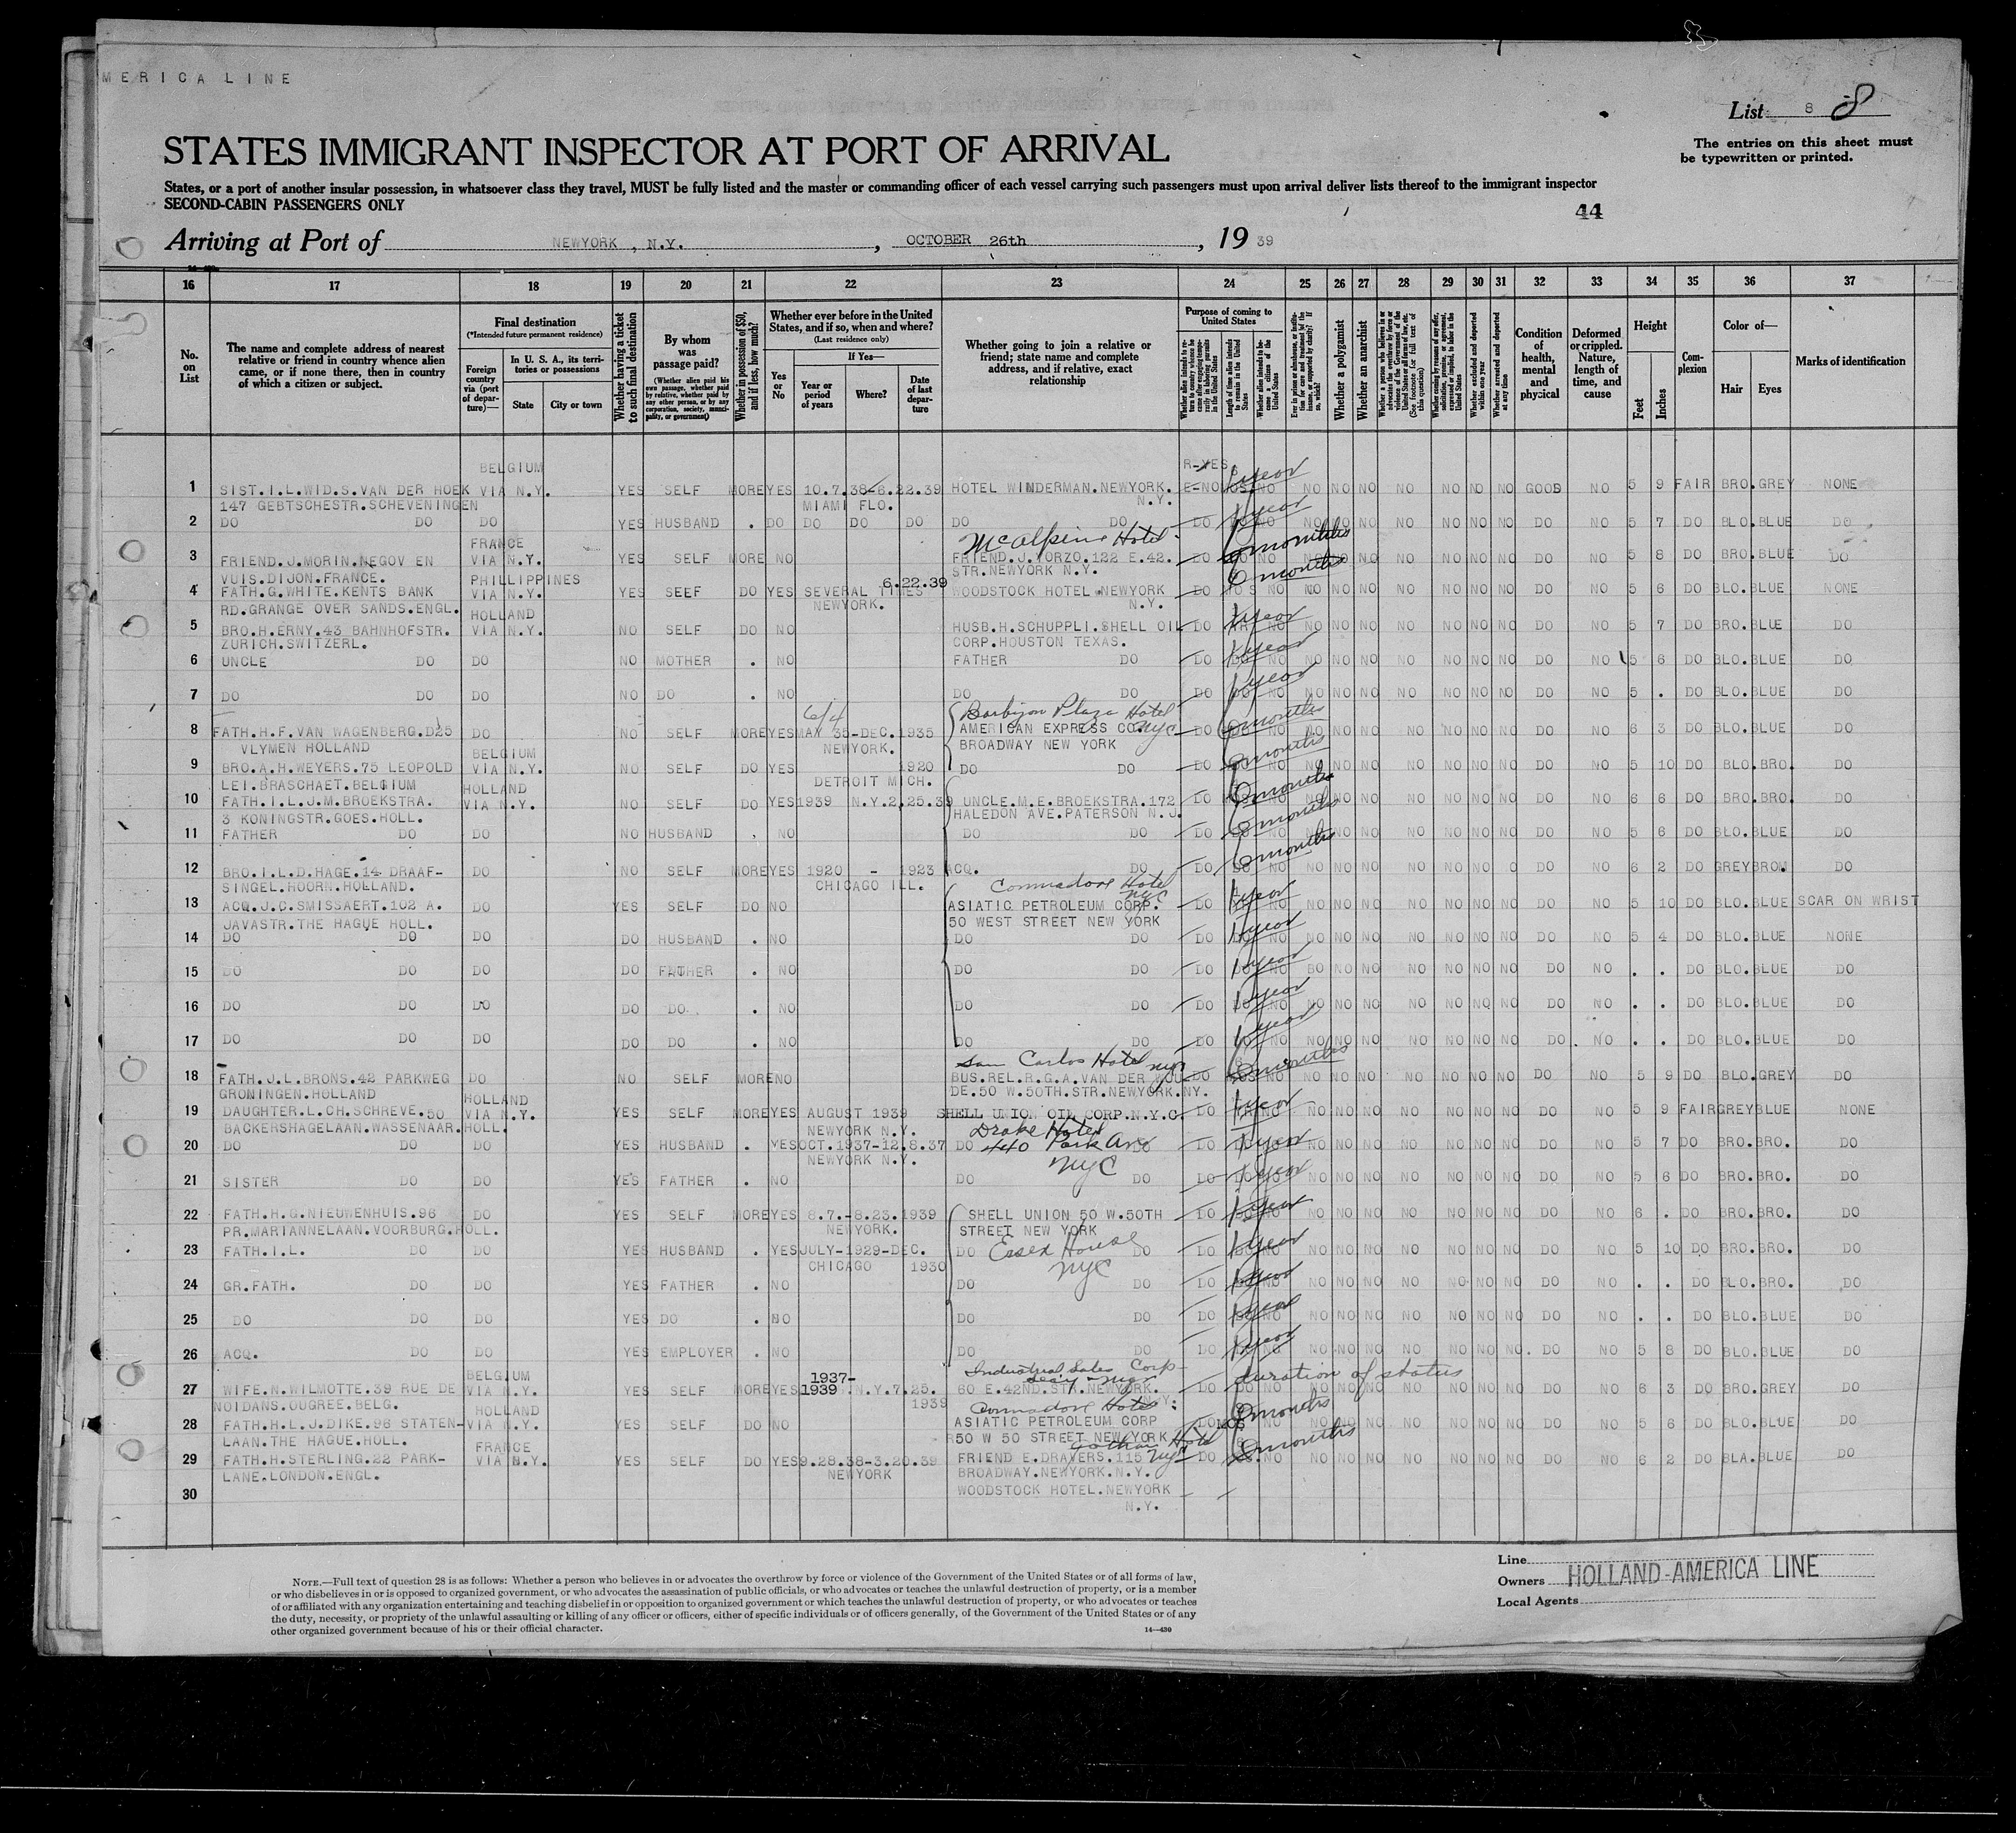 MERICA LINE
List 8 8
The entries on this sheet must
be typewritten or printed.
STATES IMMIGRANT INSPECTOR AT PORT OF ARRIVAL
States, or a port of another insular possession, in whatsoever class they travel, MUST be fully listed and the master or commanding officer of each vessel carrying such passengers must upon arrival deliver lists thereof to the immigrant inspector
SECOND-CABIN PASSENGERS ONLY
44
Arriving at Port of NEWYORK, N.Y., OCTOBER 26th, 19 39
16 17 18 19 20 21 22 23 24 25 26 27 28 29 30 31 32 33 34 35 36 37
No. on List
The name and complete address of nearest relative or friend in country whence alien came, or if none there, then in country of which a citizen or subject.
Final destination
(*Intended future permanent residence)
Foreign country via (port of departure)—
In U. S. A., its territories or possessions
State
City or town
Whether having a ticket to such final destination
By whom was passage paid?
(Whether alien paid his own passage, whether paid by relative, whether paid by any other person, or by any corporation, society, municipality, or government)
Whether in possession of $50, and if less, how much?
Whether ever before in the United States, and if so, when and where?
(Last residence only)
Yes or No
If Yes—
Year or period of years
Where?
Date of last departure
Whether going to join a relative or friend; state name and complete address, and if relative, exact relationship
Purpose of coming to United States
Length of time alien intends to remain in the United States
Whether alien intends to become a citizen of the United States
Whether a polygamist
Whether an anarchist
Whether excluded and deported within one year
Whether arrested and deported at any time
Condition of health, mental and physical
Deformed or crippled. Nature, length of time, and cause
Height
Feet
Inches
Complexion
Color of—
Hair
Eyes
Marks of identification
BELGIUM R-YES
1 SIST.I.L.WID.S.VAN DER HOEK VIA N.Y. YES SELF MORE YES 10.7.38-6.22.39 HOTEL WINDERMAN.NEWYORK. E-NO 1 year NO NO NO NO NO NO NO NO GOOD NO 5 9 FAIR BRO. GREY NONE
147 GEBTSCHESTR.SCHEVENINGEN MIAMI FLO. N.Y.
2 DO DO DO YES HUSBAND . DO DO DO DO DO DO DO 1 year NO NO NO NO NO NO NO NO DO NO 5 7 DO BLO. BLUE DO
FRANCE McAlpine Hotel
3 FRIEND.J.MORIN.NEGOV EN VIA N.Y. YES SELF MORE NO FRIEND.J.YORZO.122 E.42. DO months NO NO NO NO NO NO NO NO DO NO 5 8 DO BRO. BLUE DO
VUIS.DIJON.FRANCE. STR.NEWYORK N.Y.
PHILLIPPINES 6.22.39
4 FATH.G.WHITE.KENTS BANK VIA N.Y. YES SEEF DO YES SEVERAL TIMES WOODSTOCK HOTEL.NEWYORK DO 6 months NO NO NO NO NO NO NO NO DO NO 5 6 DO BLO. BLUE NONE
RD.GRANGE OVER SANDS.ENGL. NEWYORK. N.Y.
HOLLAND
5 BRO.H.ERNY.43 BAHNHOFSTR. VIA N.Y. NO SELF DO NO HUSB.H.SCHUPPLI.SHELL OIL DO 1 year NO NO NO NO NO NO NO NO DO NO 5 7 DO BRO. BLUE DO
ZURICH.SWITZERL. CORP.HOUSTON TEXAS.
6 UNCLE DO DO NO MOTHER . NO FATHER DO DO 1 year NO NO NO NO NO NO NO NO DO NO 5 6 DO BLO. BLUE DO
7 DO DO DO NO DO . NO DO DO DO 1 year NO NO NO NO NO NO NO NO DO NO 5 . DO BLO. BLUE DO
6/4 Barbizon Plaza Hotel
8 FATH.H.F.VAN WAGENBERG.D25 DO NO SELF MORE YES MAY 35-DEC.1935 AMERICAN EXPRESS CO. NYC DO 6 months NO NO NO NO NO NO NO NO DO NO 6 3 DO BLO. BLUE DO
VLYMEN HOLLAND NEWYORK. BROADWAY NEW YORK
BELGIUM
9 BRO.A.H.WEYERS.75 LEOPOLD VIA N.Y. NO SELF DO YES 1920 DO DO DO months NO NO NO NO NO NO NO NO DO NO 5 10 DO BLO. BRO. DO
LEI.BRASCHAET.BELGIUM DETROIT MICH.
HOLLAND
10 FATH.I.L.J.M.BROEKSTRA. VIA N.Y. NO SELF DO YES 1939 N.Y.2.25.39 UNCLE.M.E.BROEKSTRA.172 DO 6 months NO NO NO NO NO NO NO NO DO NO 6 6 DO BRO. BRO. DO
3 KONINGSTR.GOES.HOLL. HALEDON AVE.PATERSON N.J.
11 FATHER DO DO NO HUSBAND . NO DO DO DO 6 months NO NO NO NO NO NO NO NO DO NO 5 6 DO BLO. BLUE DO
12 BRO.I.L.D.HAGE.14 DRAAF- DO NO SELF MORE YES 1920 - 1923 ACQ. DO DO 6 months NO NO NO NO NO NO NO O DO NO 6 2 DO GREY BROW DO
SINGEL.HOORN.HOLLAND. CHICAGO ILL. Commodore Hotel NYC
13 ACQ.J.C.SMISSAERT.102 A. DO YES SELF DO NO ASIATIC PETROLEUM CORP. DO 1 year NO NO NO NO NO NO NO NO DO NO 5 10 DO BLO. BLUE SCAR ON WRIST
JAVASTR.THE HAGUE HOLL. 50 WEST STREET NEW YORK
14 DO DO DO DO HUSBAND . NO DO DO DO 1 year NO NO NO NO NO NO NO NO DO NO 5 4 DO BLO. BLUE NONE
15 DO DO DO DO FATHER . NO DO DO DO 1 year NO BO NO NO NO NO NO NO DO NO . . DO BLO. BLUE DO
16 DO DO DO DO DO . NO DO DO DO 1 year NO NO NO NO NO NO NO NO DO NO . . DO BLO. BLUE DO
17 DO DO DO DO DO . NO DO DO DO 1 year NO NO NO NO NO NO NO NO DO NO . . DO BLO. BLUE DO
San Carlos Hotel NYC
18 FATH.J.L.BRONS.42 PARKWEG DO NO SELF MORE NO BUS.REL.R.G.A.VAN DER WOU DO months NO NO NO NO NO NO NO NO DO NO 5 9 DO BLO. GREY DO
GRONINGEN.HOLLAND DE.50 W.50TH.STR.NEWYORK.NY.
HOLLAND
19 DAUGHTER.L.CH.SCHREVE.50 VIA N.Y. YES SELF MORE YES AUGUST 1939 SHELL UNION OIL CORP.N.Y.C. DO 1 year NO NO NO NO NO NO NO NO DO NO 5 9 FAIR GREY BLUE NONE
BACKERSHAGELAAN.WASSENAAR.HOLL. NEWYORK N.Y. Drake Hotel
20 DO DO DO YES HUSBAND . YES OCT.1937-12.8.37 DO 440 Park Ave DO DO 1 year NO NO NO NO NO NO NO NO DO NO 5 7 DO BRO. BRO. DO
NEWYORK N.Y. NYC
21 SISTER DO DO YES FATHER . NO DO DO DO 1 year NO NO NO NO NO NO NO NO DO NO 5 6 DO BRO. BRO. DO
22 FATH.H.G.NIEUWENHUIS.96 DO YES SELF MORE YES 8.7.-8.23.1939 SHELL UNION 50 W.50TH DO 1 year NO NO NO NO NO NO NO NO DO NO 6 . DO BRO. BRO. DO
PR.MARIANNELAAN.VOORBURG.HOLL. NEWYORK. STREET NEW YORK
23 FATH.I.L. DO DO YES HUSBAND . YES JULY-1929-DEC. DO Essex House DO DO 1 year NO NO NO NO NO NO NO NO DO NO 5 10 DO BRO. BRO. DO
CHICAGO 1930 NYC
24 GR.FATH. DO DO YES FATHER . NO DO DO DO 1 year NO NO NO NO NO NO NO NO DO NO . . DO BLO. BRO. DO
25 DO DO DO YES DO . NO DO DO DO 1 year NO NO NO NO NO NO NO NO DO NO . . DO BLO. BLUE DO
26 ACQ. DO DO YES EMPLOYER . NO DO DO DO 1 year NO NO NO NO NO NO NO NO DO NO 5 8 DO BLO. BLUE DO
BELGIUM 1937- Industrial Sales Corp
27 WIFE.N.WILMOTTE.39 RUE DE VIA N.Y. YES SELF MORE YES 1939 N.Y.7.25. 60 E.42ND.STR.NEWYORK. DO duration of status NO NO NO NO NO NO NO NO DO NO 6 3 DO BRO. GREY DO
NOIDANS.OUGREE.BELG. 1939 N.Y.
HOLLAND Commodore Hotel
28 FATH.H.L.J.DIKE.96 STATEN- VIA N.Y. YES SELF DO NO ASIATIC PETROLEUM CORP DO MOS months NO NO NO NO NO NO NO NO DO NO 5 6 DO BLO. BLUE DO
LAAN.THE HAGUE.HOLL. 50 W 50 STREET NEW YORK
FRANCE Gotham Hotel NYC
29 FATH.H.STERLING.22 PARK- VIA N.Y. YES SELF DO YES 9.28.38-3.20.39 FRIEND E.DRAVERS.115 DO months NO NO NO NO NO NO NO NO DO NO 6 2 DO BLA. BLUE DO
LANE.LONDON.ENGL. NEWYORK BROADWAY.NEWYORK.N.Y.
30 WOODSTOCK HOTEL.NEWYORK
N.Y.
NOTE.—Full text of question 28 is as follows: Whether a person who believes in or advocates the overthrow by force or violence of the Government of the United States or of all forms of law,
or who disbelieves in or is opposed to organized government, or who advocates the assassination of public officials, or who advocates or teaches the unlawful destruction of property, or is a member
of or affiliated with any organization entertaining and teaching disbelief in or opposition to organized government or which teaches the unlawful destruction of property, or who advocates or teaches
the duty, necessity, or propriety of the unlawful assaulting or killing of any officer or officers, either of specific individuals or of officers generally, of the Government of the United States or of any
other organized government because of his or their official character.
14—430
Line
Owners HOLLAND-AMERICA LINE
Local Agents